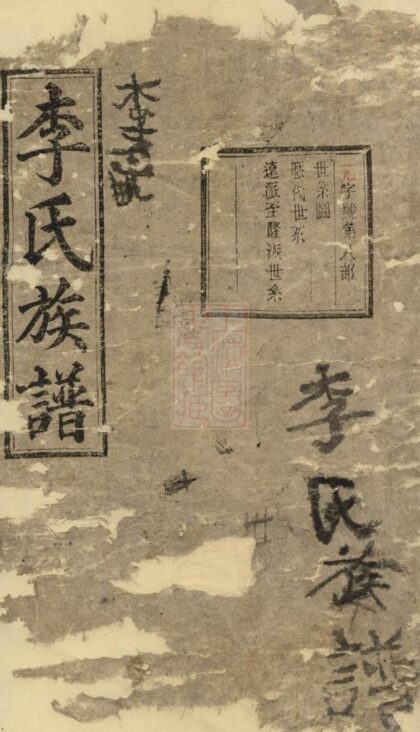 李氏族譜
元字號第八部
世系圖
歷代世系
遠派至隆派世系
李氏族譜